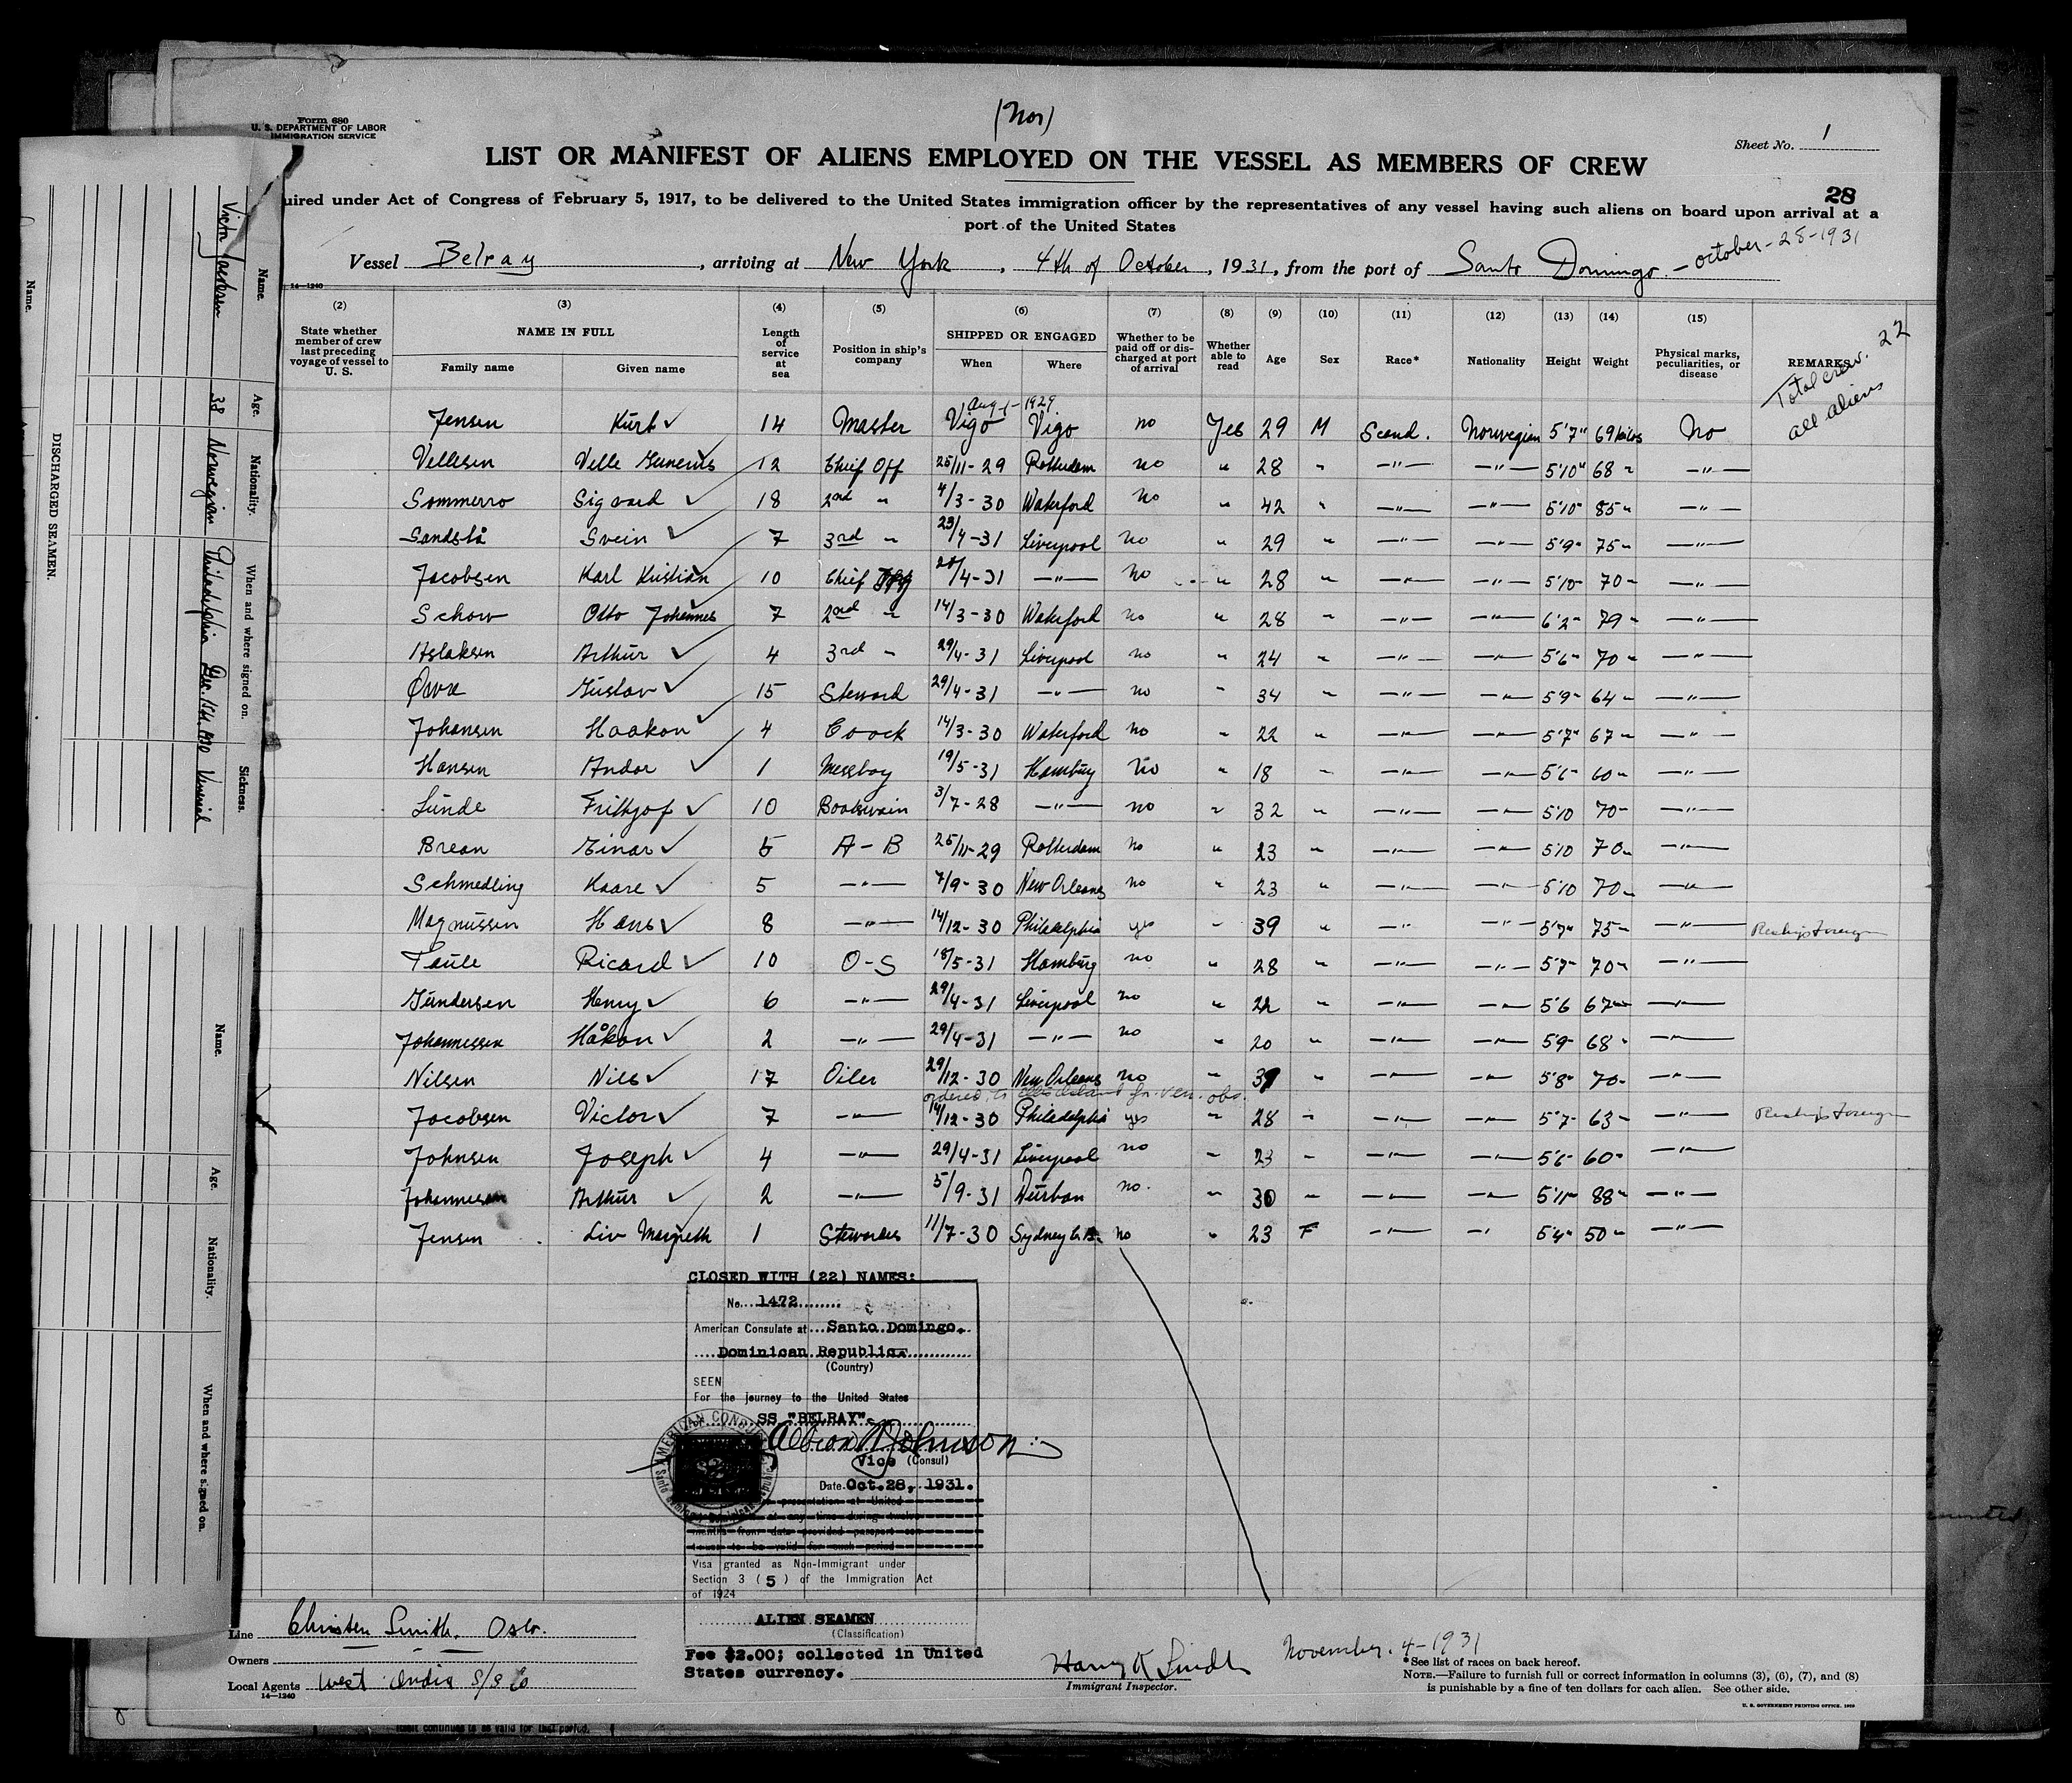 Form 680
U. S. DEPARTMENT OF LABOR
IMMIGRATION SERVICE
(Nor)
Sheet No. 1
LIST OR MANIFEST OF ALIENS EMPLOYED ON THE VESSEL AS MEMBERS OF CREW
28
uired under Act of Congress of February 5, 1917, to be delivered to the United States immigration officer by the representatives of any vessel having such aliens on board upon arrival at a
port of the United States
Vessel Belray, arriving at New York, 4th of October, 1931, from the port of Santo Domingo - october-28-1931
14—1240
(2) (3) (4) (5) (6) (7) (8) (9) (10) (11) (12) (13) (14) (15)
State whether member of crew last preceding voyage of vessel to U. S.
NAME IN FULL
Family name Given name
Length of service at sea
Position in ship's company
SHIPPED OR ENGAGED
When Where
Whether to be paid off or discharged at port of arrival
Whether able to read
Age Sex Race* Nationality Height Weight
Physical marks, peculiarities, or disease
REMARKS
Total crew. 22
all aliens
Aug-1-1929
Jensen Kurt ✓ 14 Master Vigo Vigo no Yes 29 M Scand. Norwegian 5'7" 69 kilos No
Vellesen Velle Gunerius 12 Chief Off 25/11-29 Rotterdam no " 28 " —"— —"— 5'10" 68 " —"—
Sommerro Sigvard ✓ 18 2nd " 4/3-30 Waterford no " 42 " —"— —"— 5'10" 85 " —"—
Sandstå Svein ✓ 7 3rd " 23/4-31 Liverpool no " 29 " —"— —"— 5'9" 75 " —"—
Jacobsen Karl Kristian 10 Chief 4-31 —"— no " 28 " —"— —"— 5'10" 70 " —"—
Schow Otto Johannes 7 2nd " 14/3-30 Waterford no " 28 " —"— —"— 6'2" 79 " —"—
Aslaksen Arthur ✓ 4 3rd " 29/4-31 Liverpool no " 24 " —"— —"— 5'6" 70 " —"—
Gustav ✓ 15 Steward 29/4-31 —"— no " 34 " —"— —"— 5'9" 64 " —"—
Johansen Haakon ✓ 4 Coock 14/3-30 Waterford no " 22 " —"— —"— 5'7" 67 " —"—
Hansen Andor ✓ 1 Messboy 19/5-31 Hamburg no " 18 " —"— —"— 5'6" 60 " —"—
Lunde Frithjof ✓ 10 Boatswain 3/7-28 —"— no " 32 " —"— —"— 5'10 70 " —"—
Brean Einar ✓ 5 A-B 25/11-29 Rotterdam no " 23 " —"— —"— 5'10 70 " —"—
Schmedling Kaare ✓ 5 —"— 7/9-30 New Orleans no " 23 " —"— —"— 5'10 70 " —"—
Magnussen Hans ✓ 8 —"— 14/12-30 Philadelphia yes " 39 " —" —"— 5'7" 75 " —"— Reships Foreign
Taule Ricard ✓ 10 O-S 18/5-31 Hamburg no " 28 " —"— —"— 5'7" 70 " —"—
Gundersen Henry ✓ 6 —"— 29/4-31 Liverpool no " 22 " —"— —"— 5'6 67 " —"—
Johannessen Håkon ✓ 2 —"— 29/4-31 —"— no " 20 " —"— —"— 5'9" 68 " —"—
Nilsen Nils ✓ 17 Oiler 29/12-30 New Orleans no " 39 " —"— —"— 5'8" 70 " —"—
ordered to Ellis Island for ven. obs.
Jacobsen Victor ✓ 7 —"— 14/12-30 Philadelphia yes " 28 " —"— —"— 5'7" 63 " —"— Reships Foreign
Johnsen Joseph ✓ 4 —"— 29/4-31 Liverpool no " 23 " —"— —"— 5'6" 60 " —"—
Johannesen Arthur ✓ 2 —"— 5/9-31 Durban no. " 30 " —"— —"— 5'11" 88 " —"—
Jensen Liv Margreth 1 Stewardes 11/7-30 Sydney no " 23 F —"— —" 5'4" 50 " —"—
CLOSED WITH (22) NAMES:
No. 1472
American Consulate at Santo Domingo,
Dominican Republic
(Country)
SEEN
For the journey to the United States
SS "BELRAY"
Albion W Johnson
Vice (Consul)
Date Oct. 28, 1931.
Visa granted as Non-Immigrant under
Section 3 (5) of the Immigration Act
of 1924
ALIEN SEAMEN
(Classification)
Fee $2.00; collected in United
States currency.
AMERICAN CONSULATE
Line Christen Smith, Oslo.
Owners
Local Agents West India S/S Co
14—1240
Harry K Smith
Immigrant Inspector.
November. 4-1931
*See list of races on back hereof.
NOTE.—Failure to furnish full or correct information in columns (3), (6), (7), and (8)
is punishable by a fine of ten dollars for each alien. See other side.
U. S. GOVERNMENT PRINTING OFFICE
DISCHARGED SEAMEN.
Name. Age. Nationality. When and where signed on. Sickness.
Victor Jacobsen 38 Norwegian Philadelphia Dec. 15th. 1930 Venerial
Name. Age. Nationality. When and where signed on.
Name.